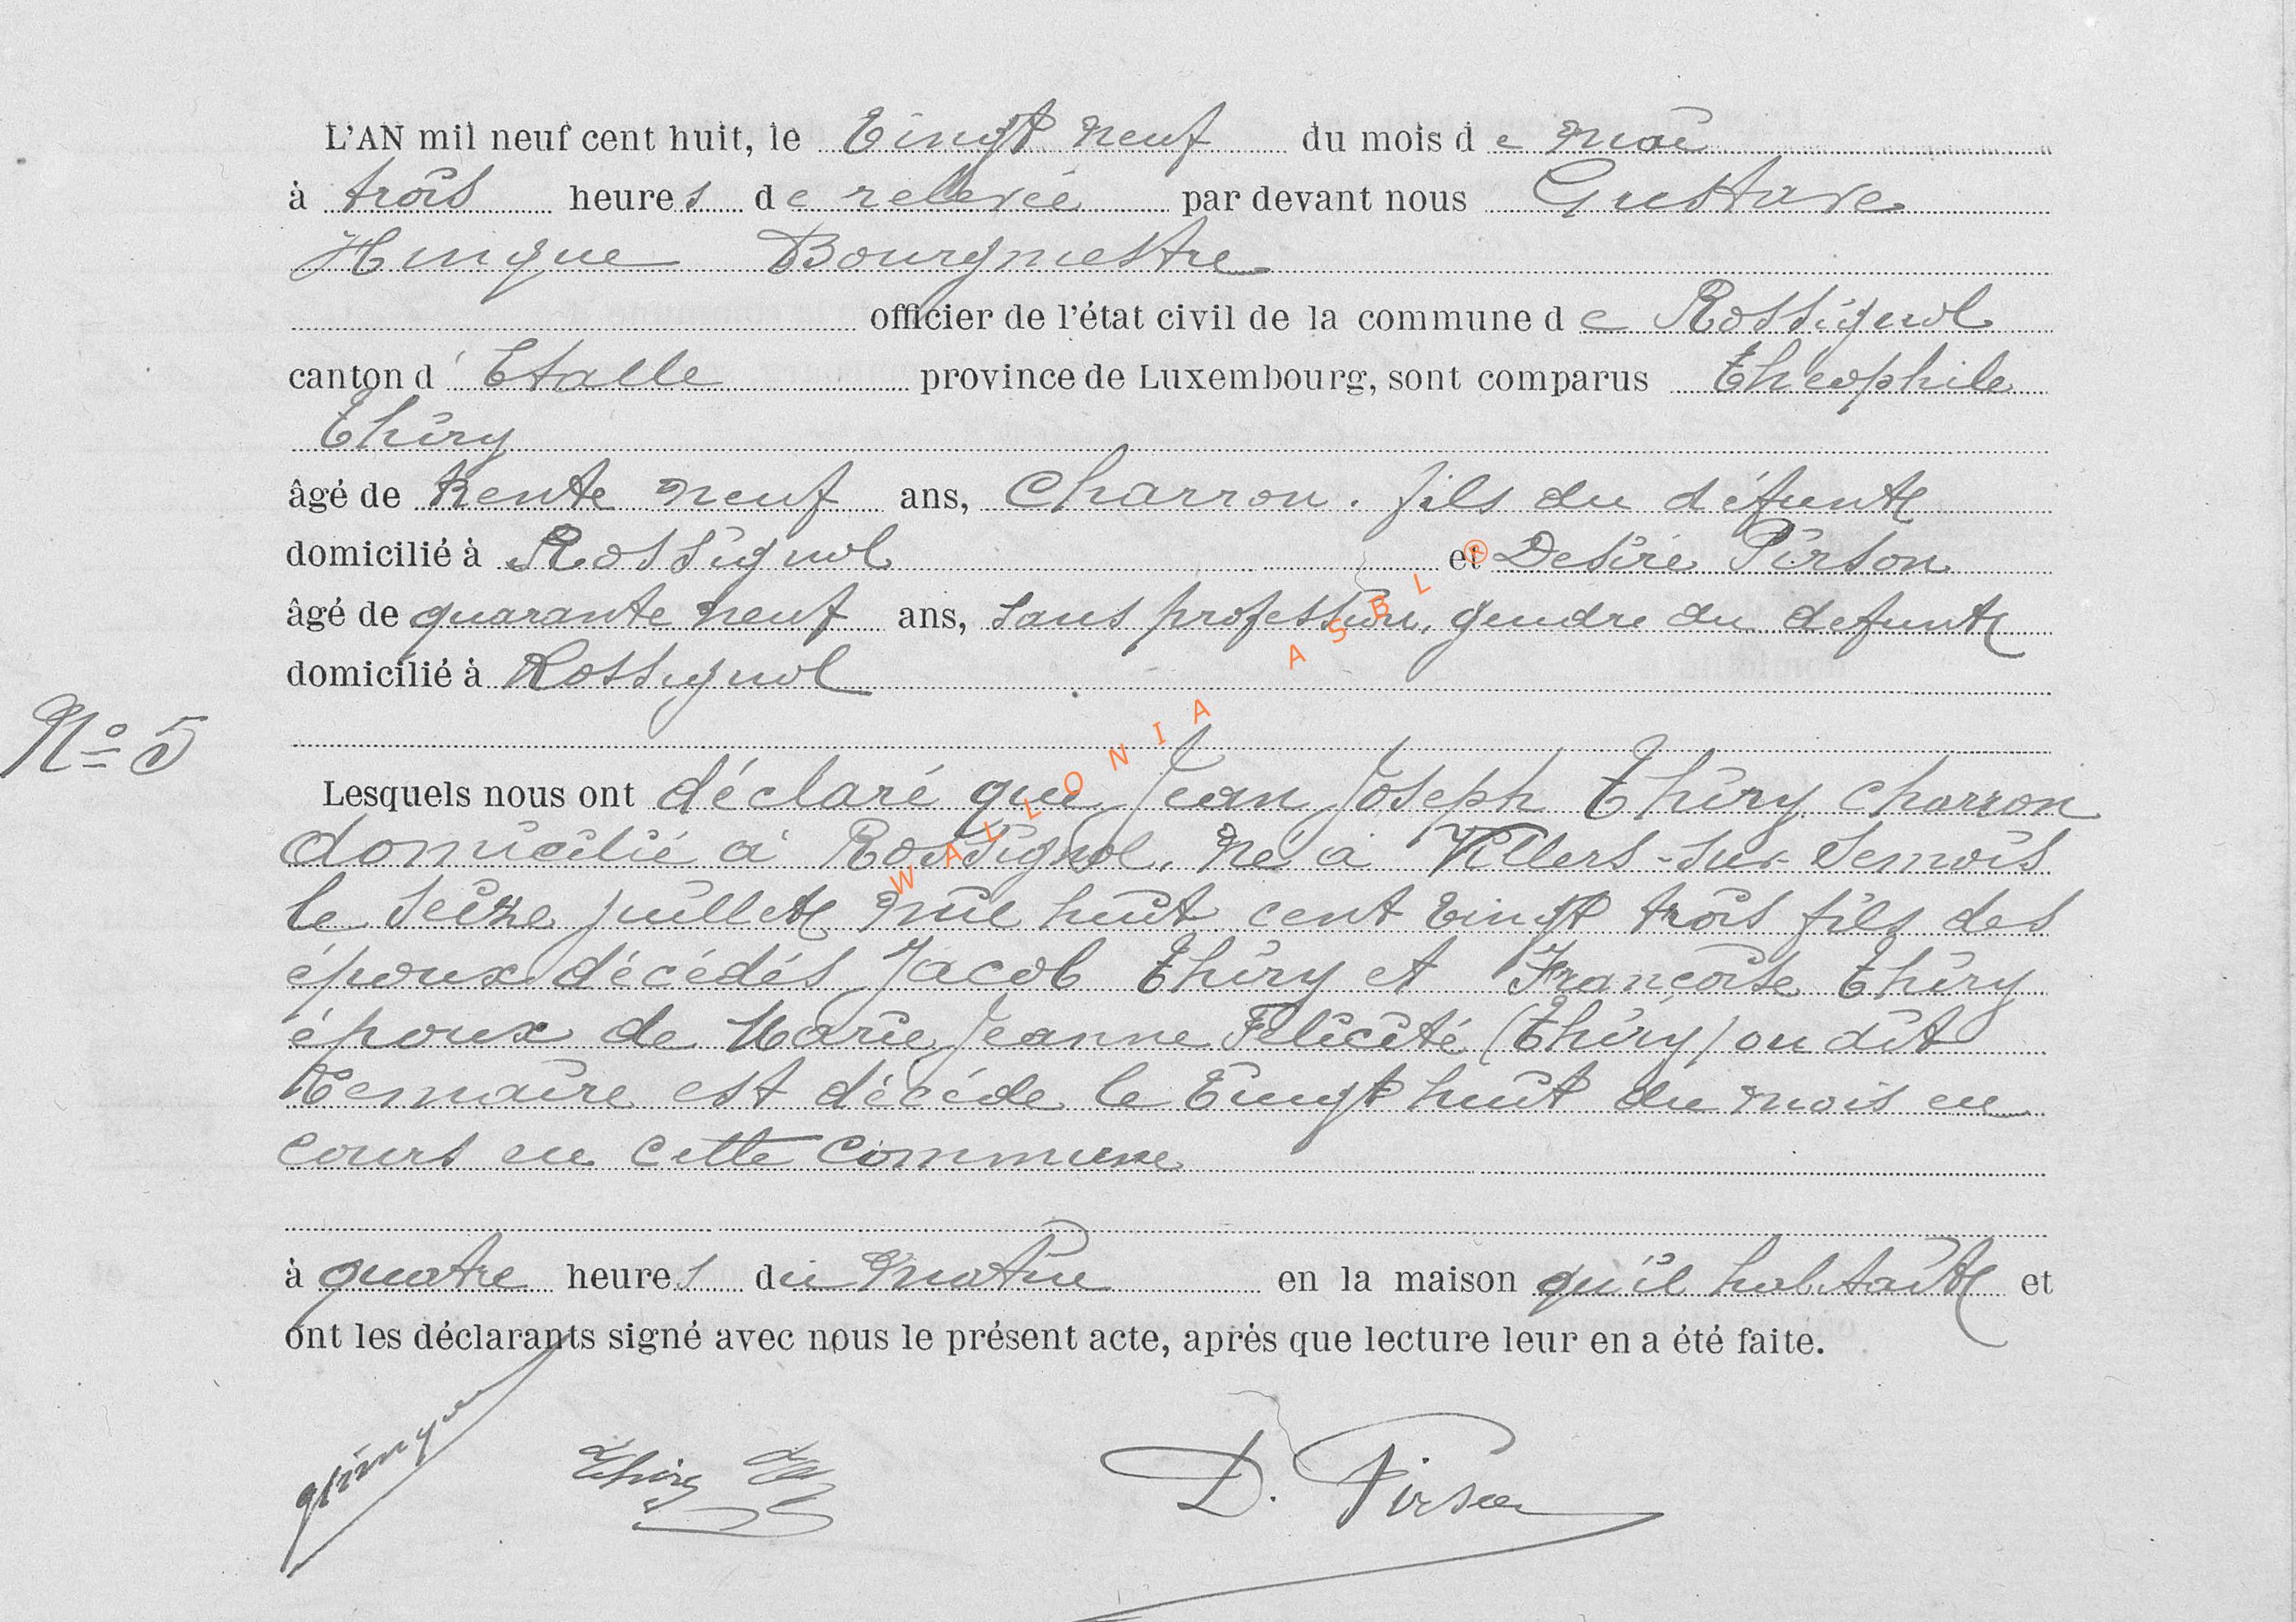 L'AN mil neuf cent huit, le Vingt neuf du mois de mai
à trois heures de relevée par devant nous Gustave
Hinque Bourgmestre
officier de l'état civil de la commune de Rossignol
canton d'Etalle province de Luxembourg, sont comparus Théophile
Thiry
âgé de trente neuf ans, Charron. fils du défunt
domicilié à Rossignol et Desiré Pirson
âgé de quarante neuf ans, sans profession, gendre du defunt
domicilié à Rossignol
N° 5
Lesquels nous ont déclaré que Jean Joseph Thiry charron
domicilié à Rossignol, né à Villers-sur-Semois
le seize juillet mil huit cent vingt trois fils des
époux décédés Jacob Thiry et Françoise Thiry
époux de Marie Jeanne Félicité (Thiry) ou dit
Remaire est décédé le vingt huit du mois en
cours en cette commune
à quatre heures du matin en la maison qu'il habitait et
ont les déclarants signé avec nous le présent acte, après que lecture leur en a été faite.
GHinque Thiry D. Pirson
WALLONIA ASBL ®